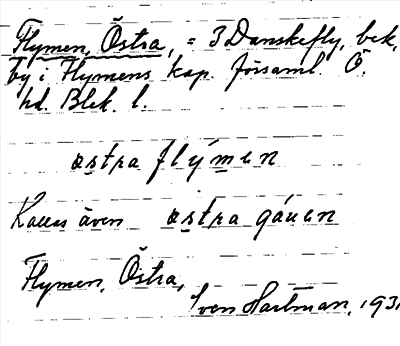 Flymen, Östra, = 3 Danskefly, bek.
by i Flymens kap. församl. Ö.
hd. Blek. l.
østra flýmen
Kallas även østra gáuen
Flymen, Östra,
Sven Hartman, 1931